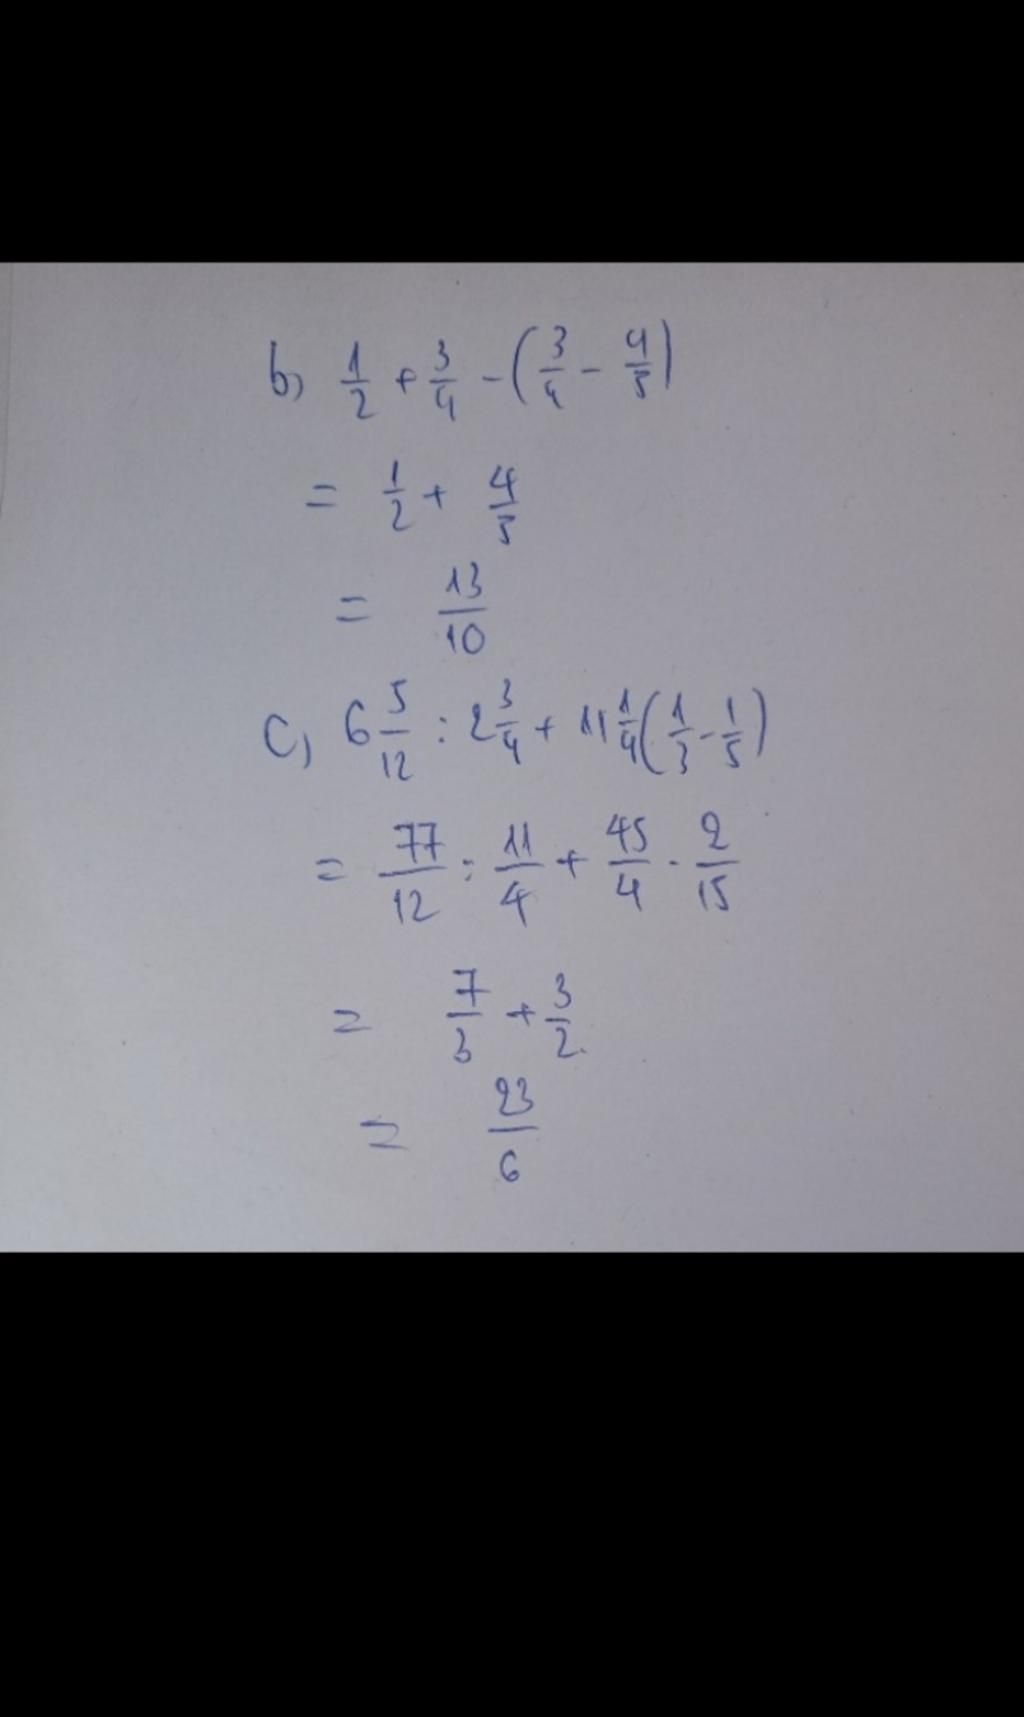 b, 1/2 + 3/4 - (3/4 - 4/5)
= 1/2 + 4/5
= 13/10
c, 6 5/12 : 2 3/4 + 11 1/4 (1/3 - 1/5)
= 77/12 : 11/4 + 45/4 . 2/15
= 7/3 + 3/2
= 23/6